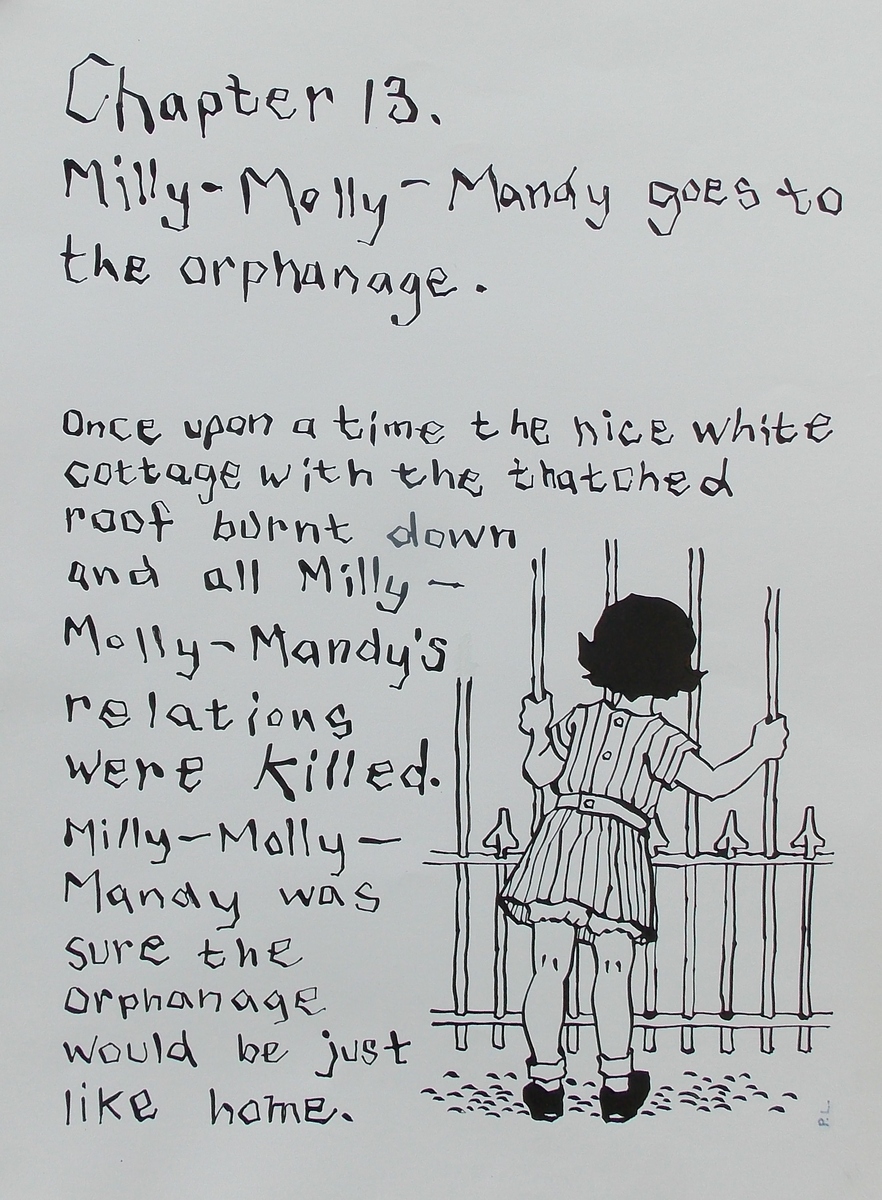 Chapter 13.
Milly-Molly-Mandy goes to
the orphanage.
Once upon a time the nice white
cottage with the thatched
roof burnt down
and all Milly-
Molly-Mandy's
relations
were killed.
Milly-Molly-
Mandy was
sure the
orphanage
would be just
like home.
P.L.